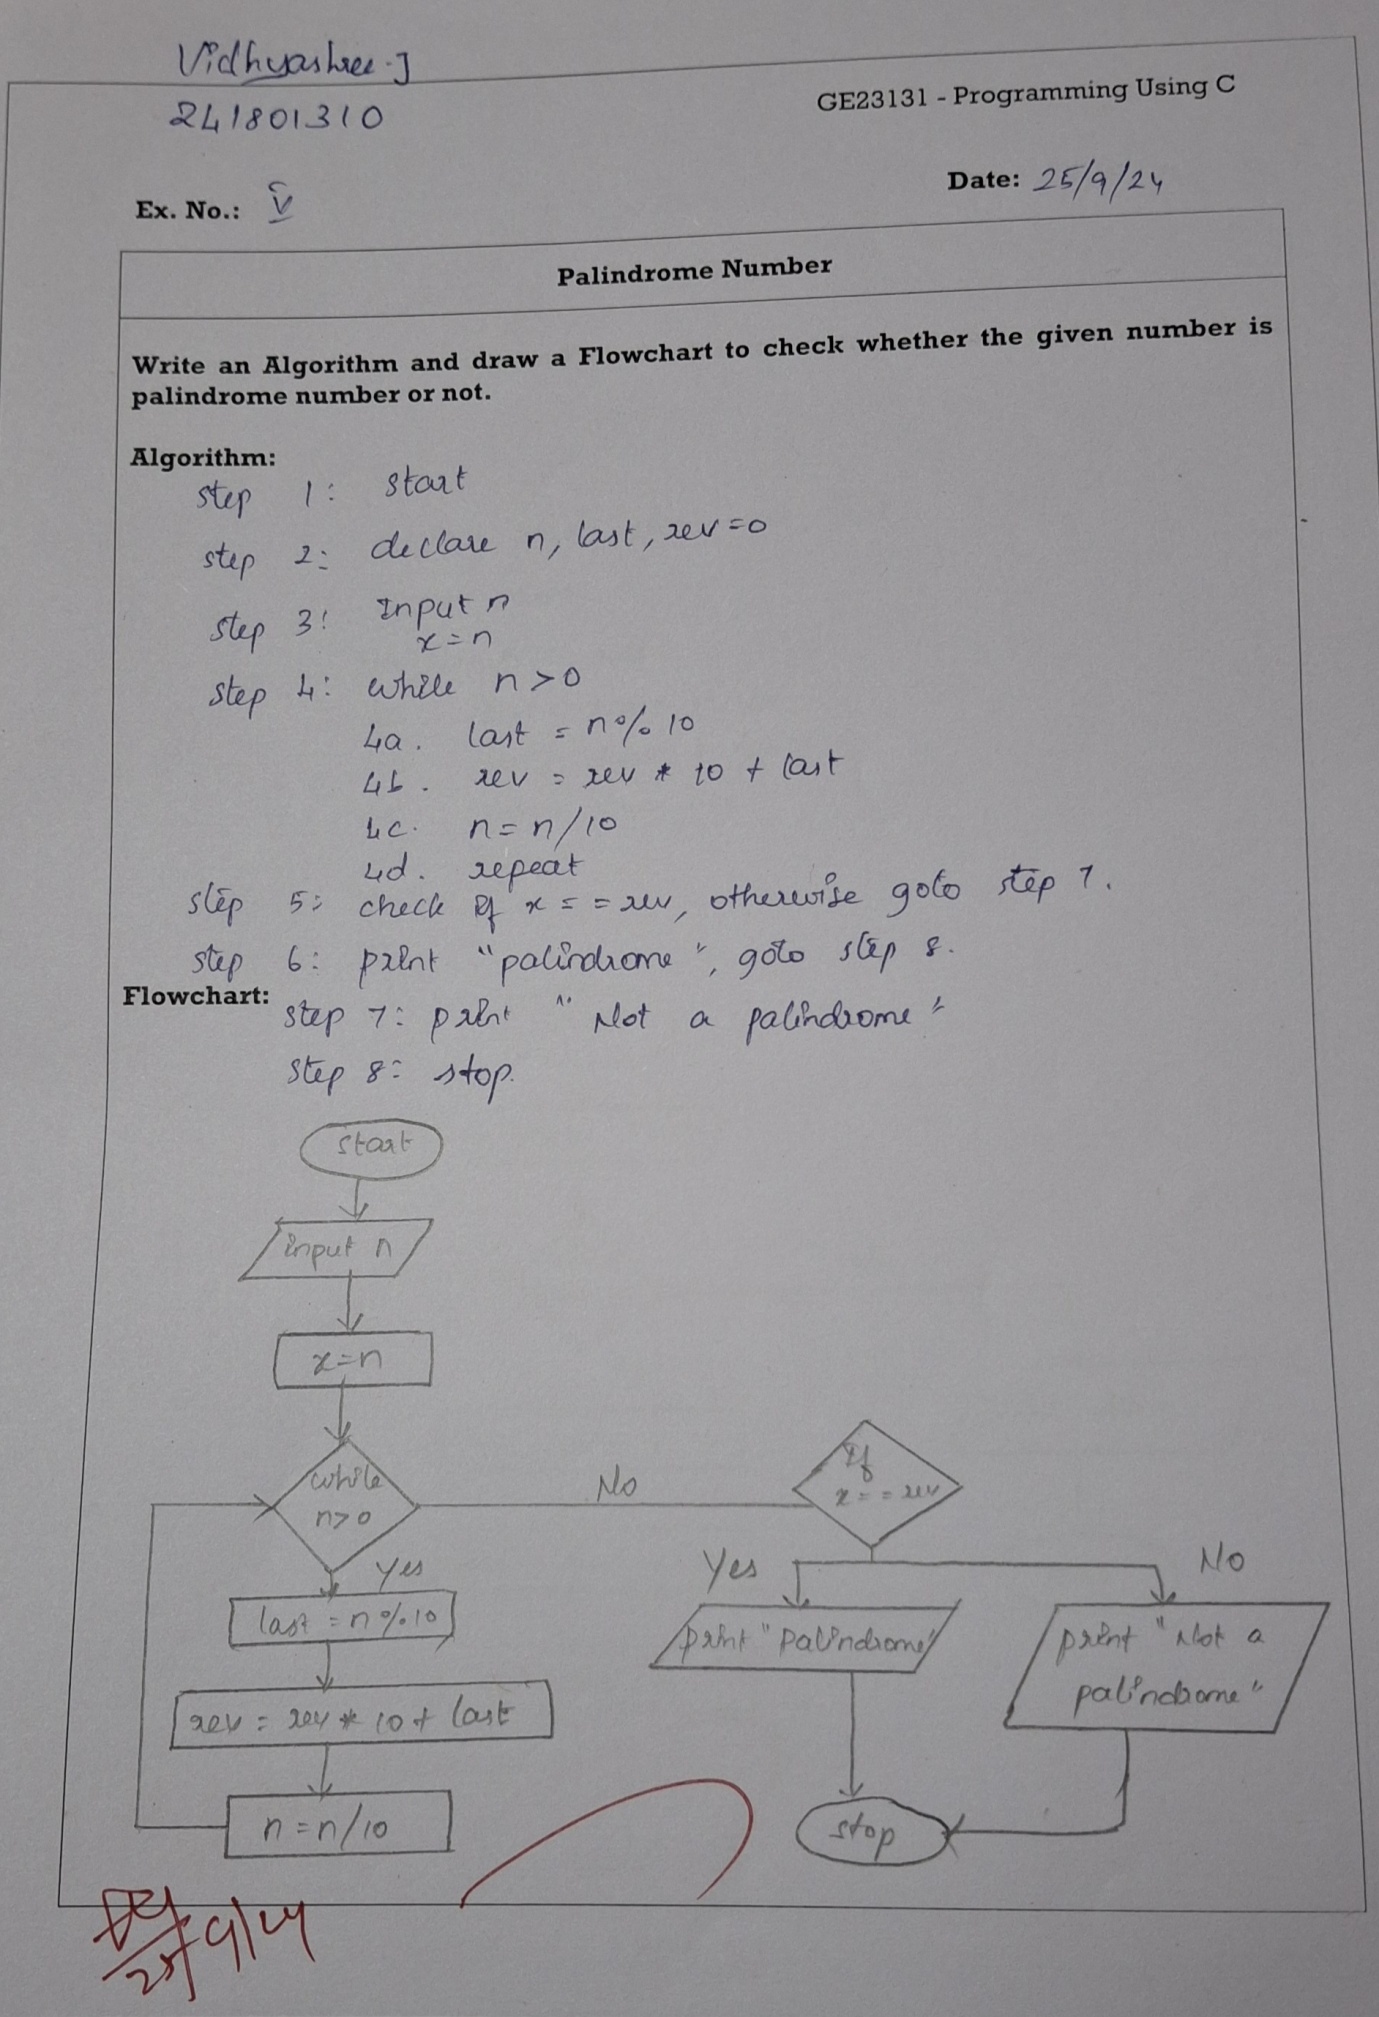 Vidhyashree.J
241801310
GE23131 - Programming Using C
Ex. No.: v
Date: 25/9/24
Palindrome Number
Write an Algorithm and draw a Flowchart to check whether the given number is
palindrome number or not.
Algorithm:
step 1: start
step 2: declare n, last, rev=0
step 3: Input n
x=n
step 4: while n>0
4a. last = n%10
4b. rev = rev * 10 + last
4c. n=n/10
4d. repeat
step 5: check if x==rev, otherwise goto step 7.
step 6: print "palindrome", goto step 8.
Flowchart:
step 7: print "Not a palindrome"
step 8: stop.
start
input n
x=n
while
n>0
No
If
x==rev
Yes
Yes
No
last = n%10
print "Palindrome"
print "Not a
palindrome"
rev = rev * 10 + last
n=n/10
stop
25/9/24